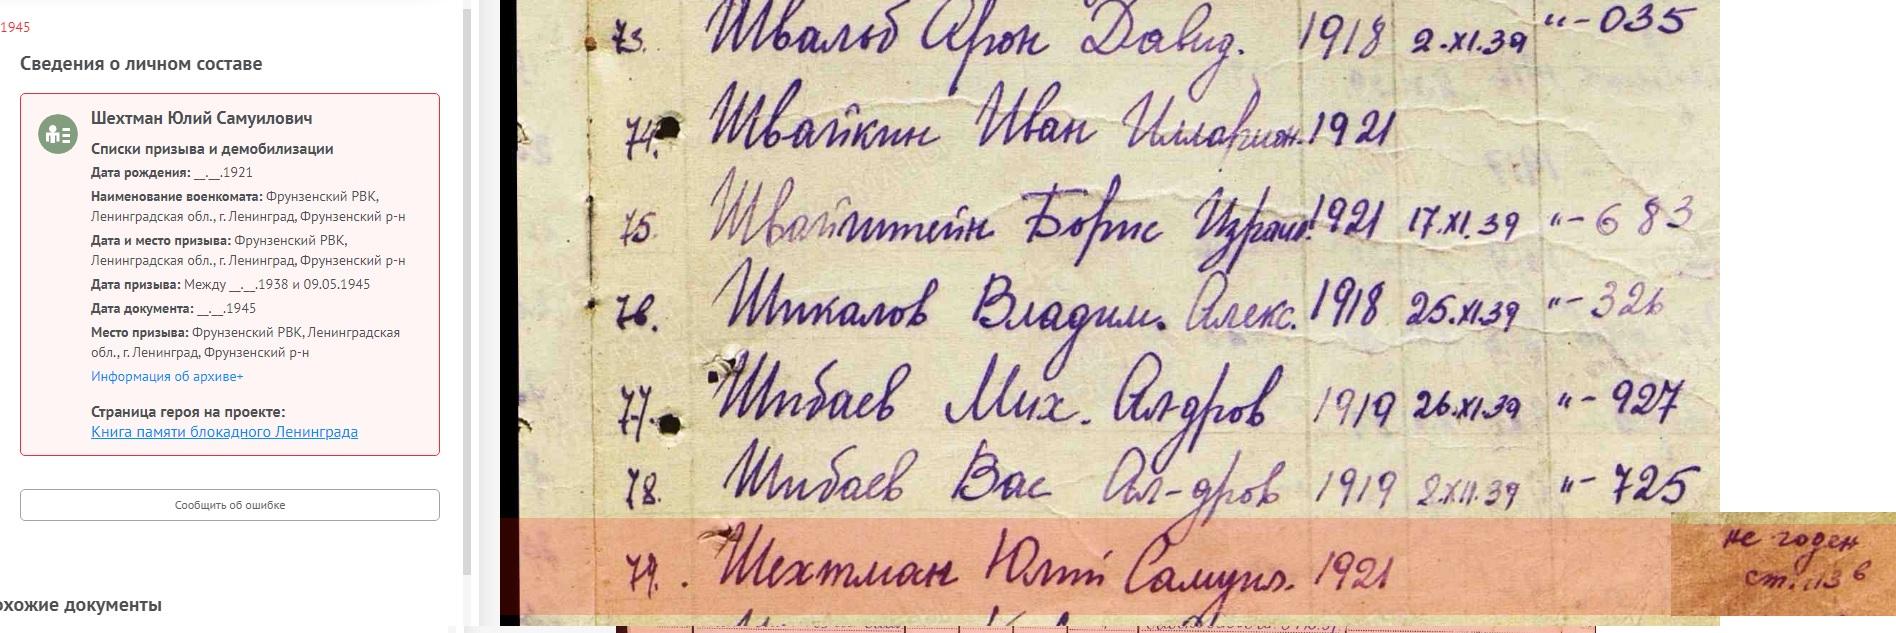 1945
Сведения о личном составе
Шехтман Юлий Самуилович
Списки призыва и демобилизации
Дата рождения: __.__.1921
Наименование военкомата: Фрунзенский РВК,
Ленинградская обл., г. Ленинград, Фрунзенский р-н
Дата и место призыва: Фрунзенский РВК,
Ленинградская обл., г. Ленинград, Фрунзенский р-н
Дата призыва: Между __.__.1938 и 09.05.1945
Дата документа: __.__.1945
Место призыва: Фрунзенский РВК, Ленинградская
обл., г. Ленинград, Фрунзенский р-н
Информация об архиве+
Страница героя на проекте:
Книга памяти блокадного Ленинграда
Сообщить об ошибке
охожие документы
73. Швальб Арон Давид. 1918 2.XI.39 "-035
74. Швайкин Иван Илларион. 1921
75. Вайнштейн Борис Израил. 1921 17.XI.39 "-683
76. Шикалов Владим. Алекс. 1918 25.XI.39 "-326
77. Шибаев Мих. Ал-дров 1919 26.XI.39 "-927
78. Шибаев Вас Ал-дров 1919 2.XII.39 "-725
79. Шехтман Юлий Самуил. 1921
не годен
ст. 113 в